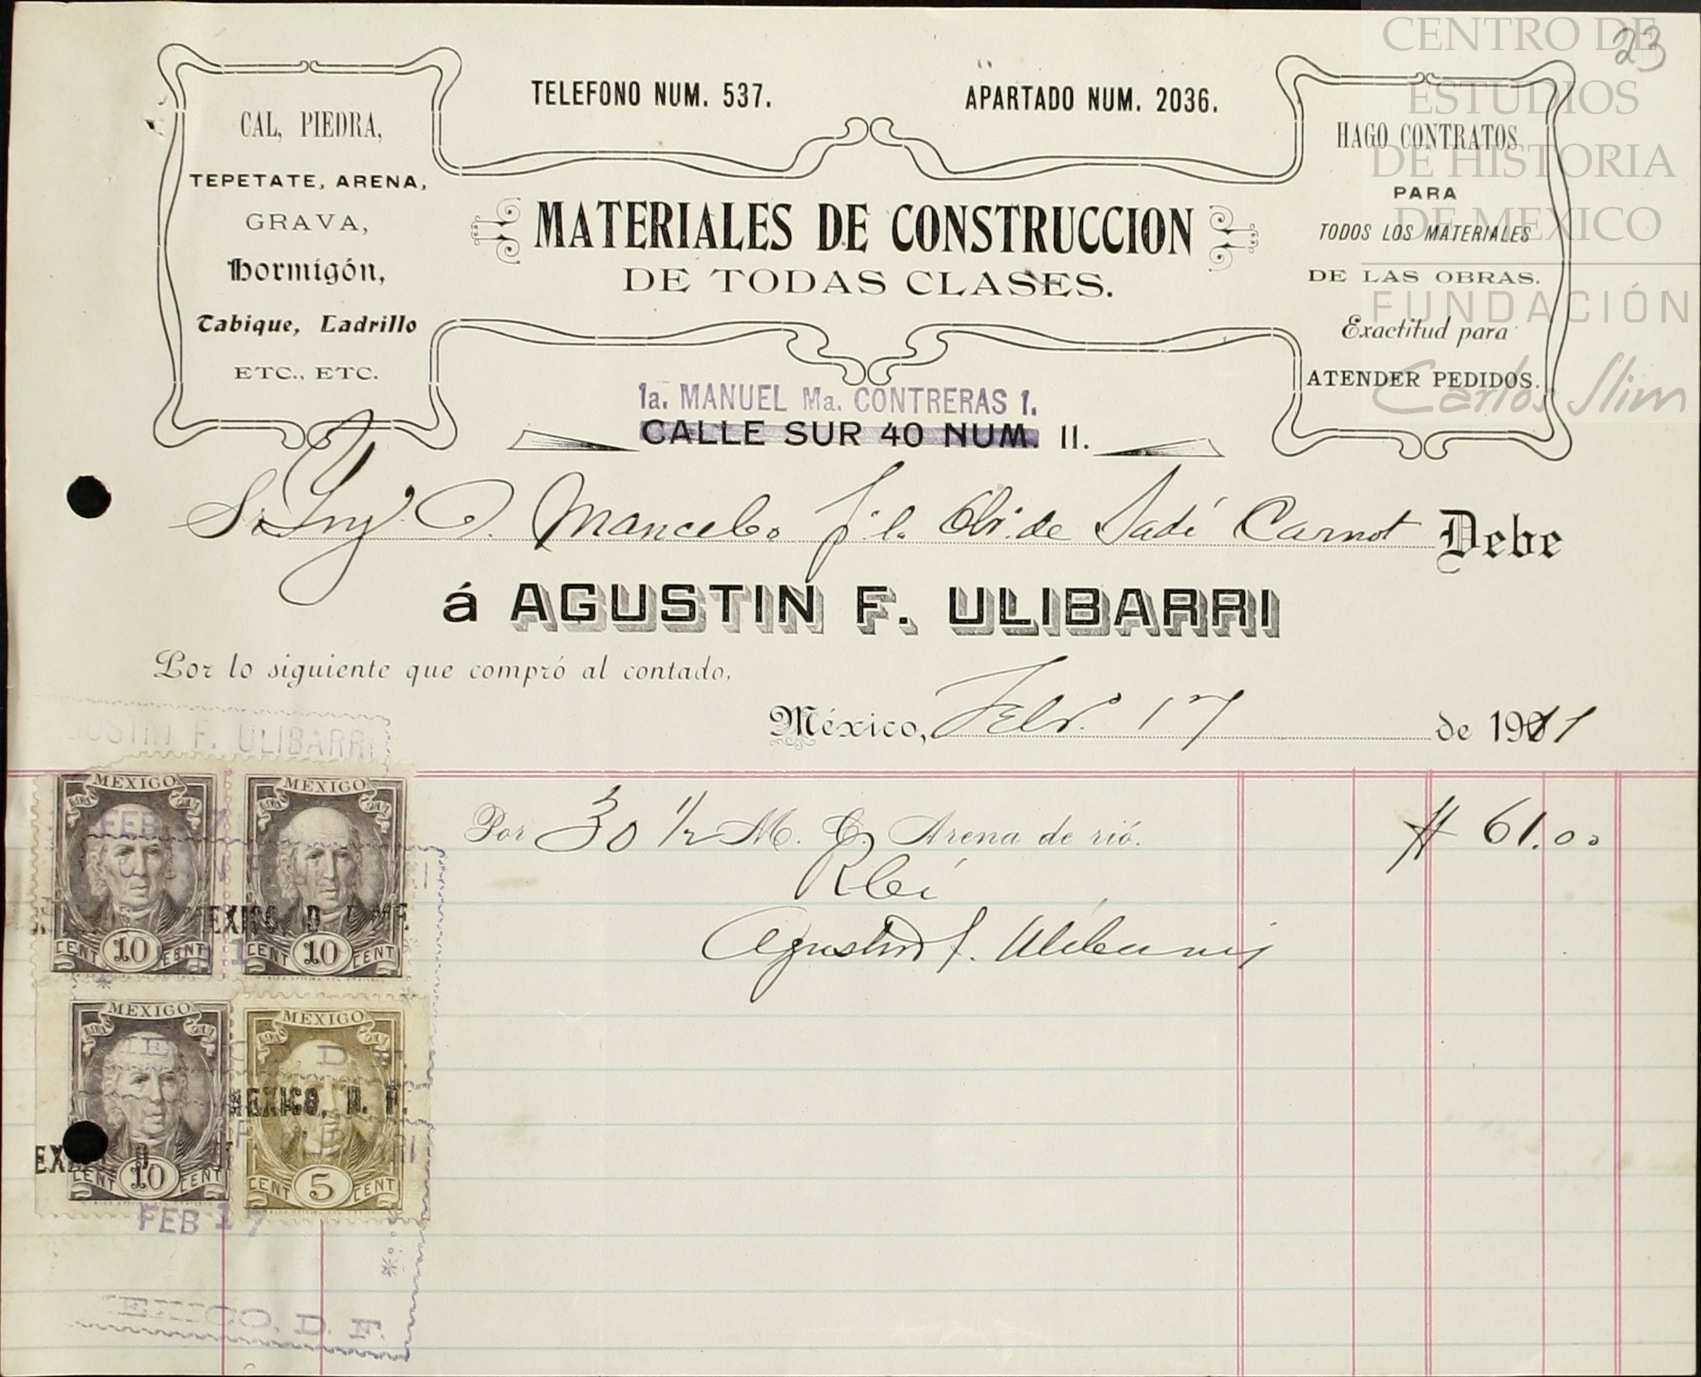 23
CENTRO DE
ESTUDIOS
DE HISTORIA
DE MEXICO
FUNDACIÓN
Carlos Slim
TELEFONO NUM. 537.
APARTADO NUM. 2036.
CAL, PIEDRA,
TEPETATE, ARENA,
GRAVA,
Hormigón,
Tabique, Ladrillo
ETC., ETC.
MATERIALES DE CONSTRUCCION
DE TODAS CLASES.
HAGO CONTRATOS
PARA
TODOS LOS MATERIALES
DE LAS OBRAS.
Exactitud para
ATENDER PEDIDOS.
1a. MANUEL Ma. CONTRERAS 1.
CALLE SUR 40 NUM. 11.
Sr. Ing. D. Mancebo p. l. Obr. de Sadi Carnot Debe
á AGUSTIN F. ULIBARRI
Por lo siguiente que compró al contado.
México, Febr. 17 de 1911
AGUSTIN F. ULIBARRI
Por 30 1/2 M. C. Arena de rió. $ 61.00
Rbí
Agustin F. Ulibarri
MEXICO
MEXICO
FEB 17
MEXICO, D. F.
CENT 10 CENT
CENT 10 CENT
MEXICO
MEXICO
MEXICO, D. F.
CENT 10 CENT
CENT 5 CENT
FEB 17
MEXICO, D. F.